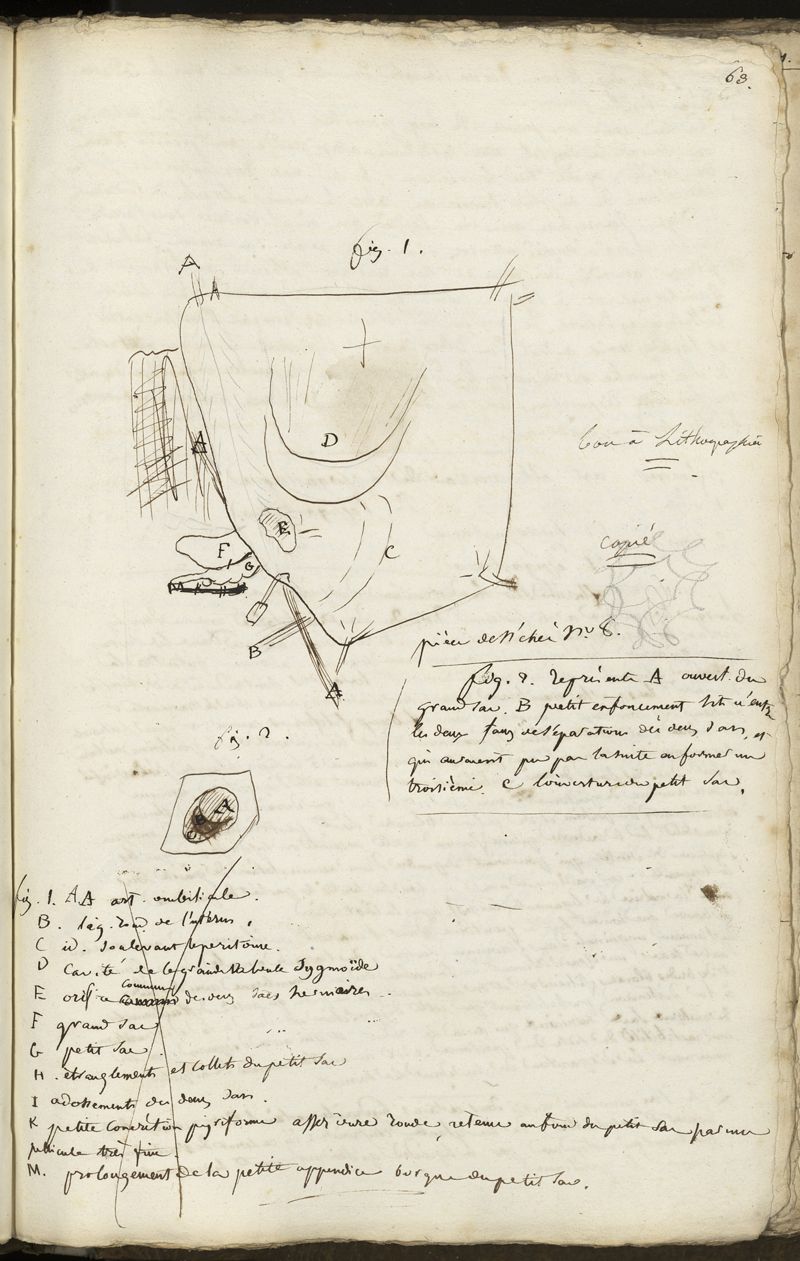 63.
fig. 1.
A
A
D
A
bon à Lithographier
E
C
F
G
I
copié
M K H
B
A
pièce desséchée No 8.
fig. 2. représente A ouvert. du
grand sac. B petit enfoncement situé entre
les deux séparations des deux sacs, et
qui auraient pu par la suite en former un
troisième. C l'ouverture du petit sac.
fig. 2.
A
B
C
fig. 1. AA art. ombilicale.
B. lig. rond de l'utérus.
C id. soulevant le peritoine.
D cavité de la grande sygmoïde
E orifice commun des deux sacs herniaires
F grand sac
G petit sac.
H. étranglements et collets du petit sac
I adossements des deux sacs.
K petite concrétion pyriforme assez ronde, retenue au fond du petit sac par une
pellicule très fine.
M. prolongement de la petite appendice borgne du petit sac.